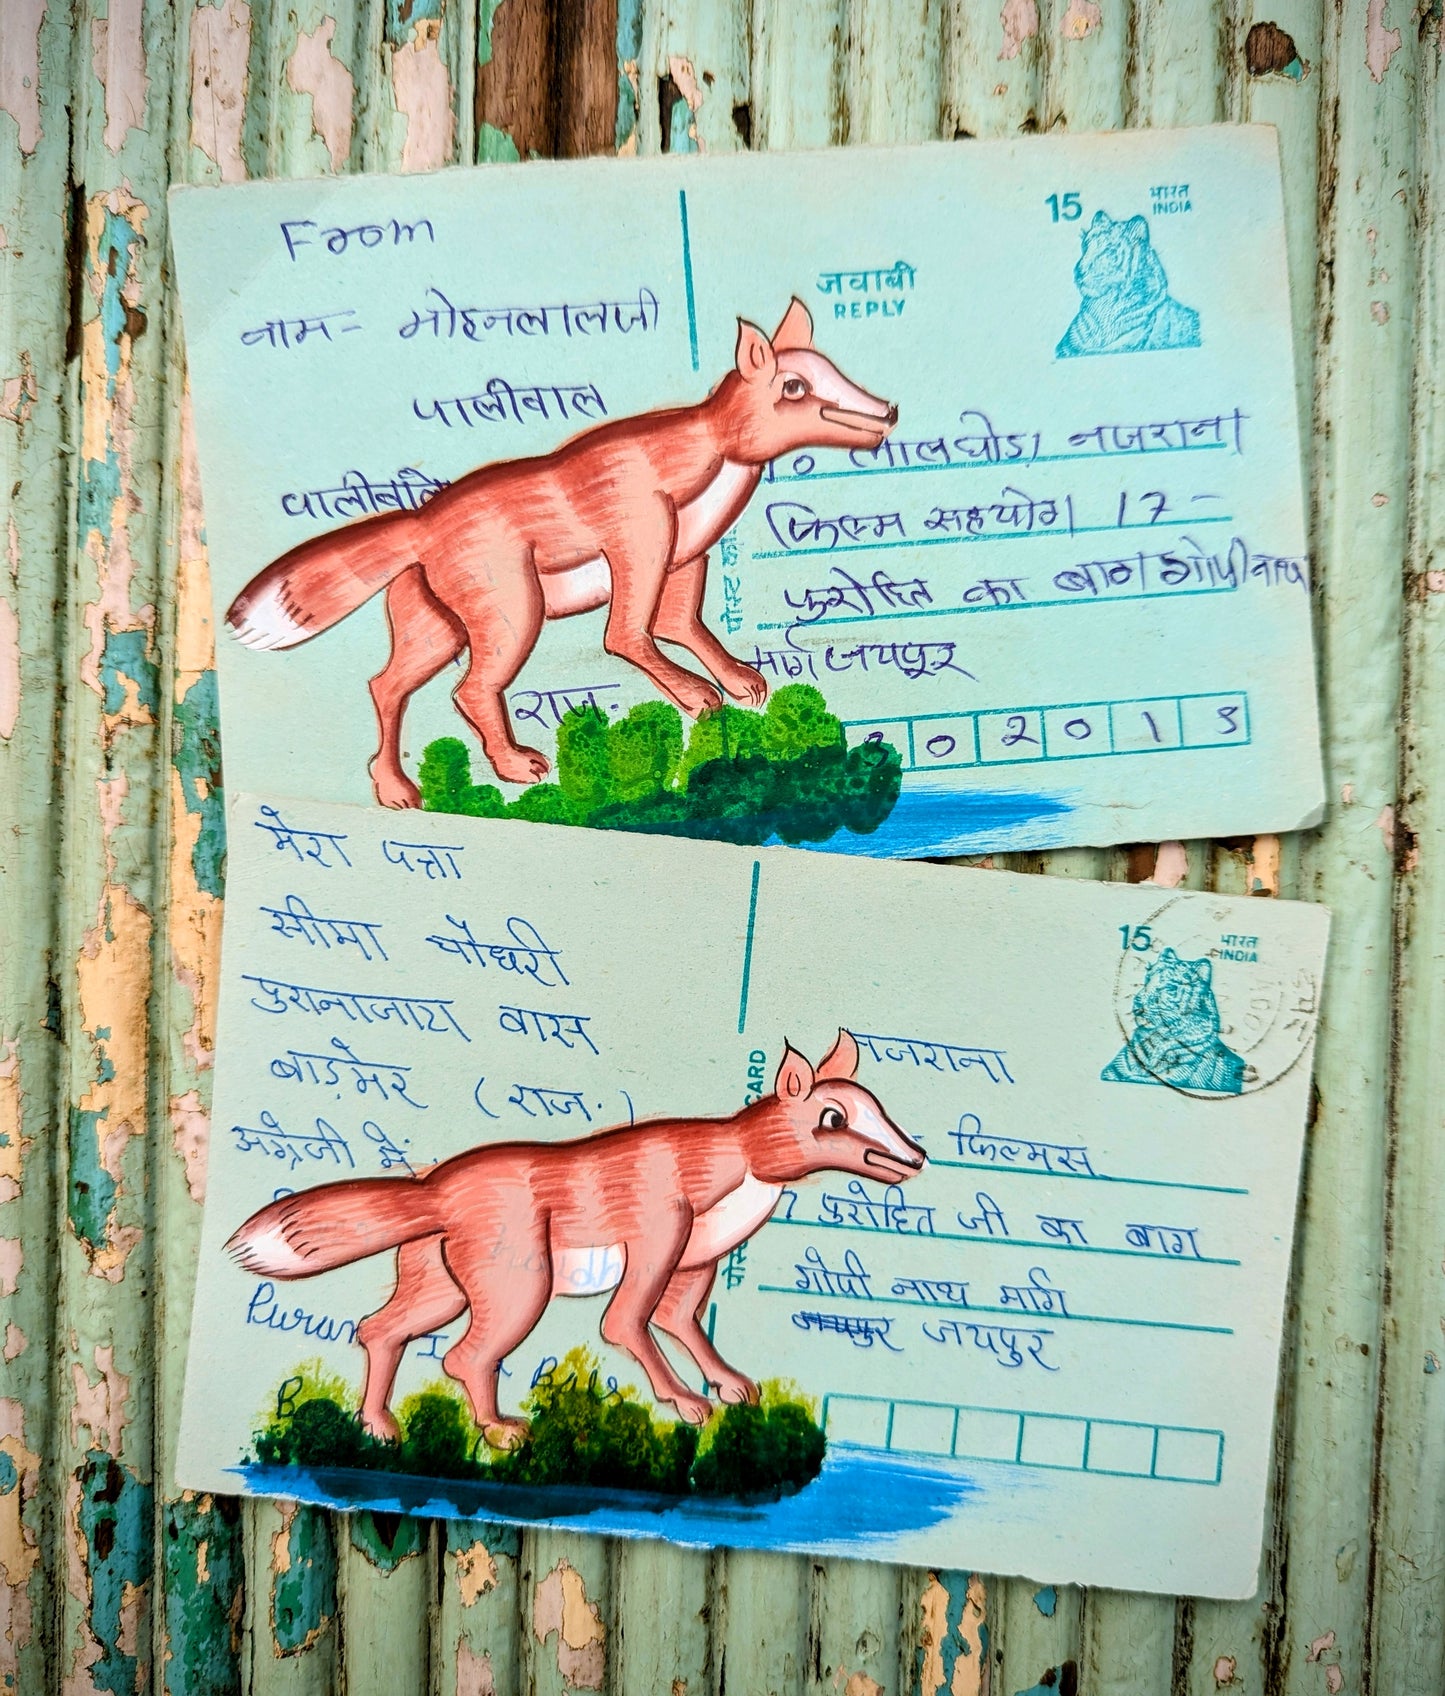 From
नाम = मोहनलालजी
पालीवाल
राज.
15
भारत
INDIA
जवाबी
REPLY
लालघोडा नजराना
फिल्म सहयोग 17 -
पुरोहित का बाग गोपीनाथ
मार्ग जयपुर
302013
मेरा पत्ता
सीमा चौधरी
पुरानाजाटा वास
बाड़मेर (राज.)
अंग्रेजी में
15
भारत
INDIA
CARD
नजराना
फिल्मस
7 पुरोहित जी का बाग
गोपी नाथ मार्ग
जयपुर